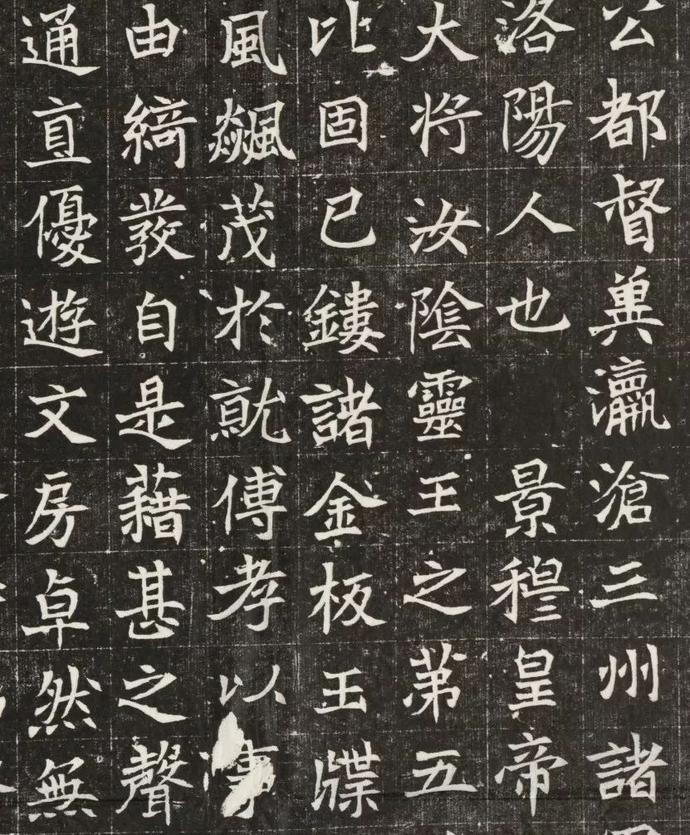 公都督冀瀛滄三州諸
洛陽人也 景穆皇帝
大将汝陰靈王之苐五
比固已鏤諸金板玉牒
風飆茂於就傅孝以
由縞發自是藉甚之聲
通直優遊文房卓然無